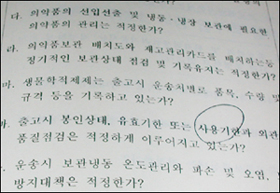 다. 의약품의 선입선출 및 냉동·냉장 보관에 필요한
의약품의 관리는 적정한가?
라. 의약품보관 배치도와 재고관리카드를 배치하는등
정기적인 보관상태 점검 및 기록유지는 적정한가?
마. 생물학적제제는 출고시 운송처별로 품목, 수량 및
규격 등을 기록하고 있는가?
바. 출고시 봉인상태, 유효기한 또는 사용기한과 외관
품질점검은 적정하게 이루어지고 있는가?
운송시 보관냉동 온도관리와 파손 및 오염
방지대책은 적정한가?